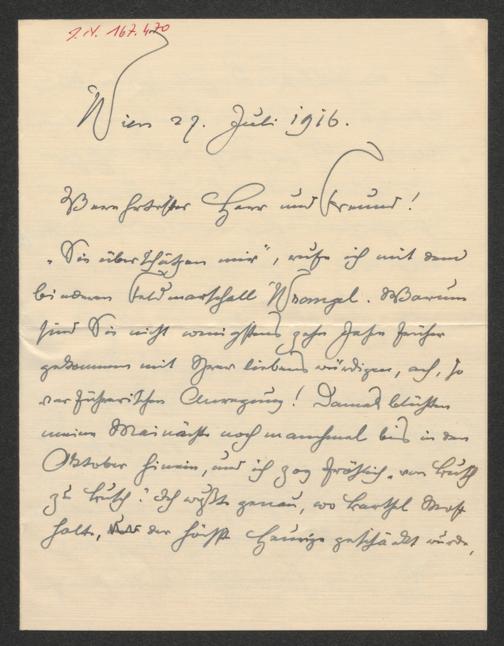 I.N. 167.470
Wien 27. Juli 1916.
Verehrtester Herr und Freund!
„Sie überschätzen mir“, rufe ich mit dem
biederen Feldmarschall Wrangel. Warum
sind Sie nicht wenigstens zehn Jahre früher
gekommen mit Ihrer liebenswürdigen, ach, so
verführerischen Anregung! Damals blühten
meine Mainächte noch manchmal bis in den
Oktober hinein, und ich zog fröhlich „von
zu Ich wußte genau, wo Most
halte, der Heurige geschänkt wurde,